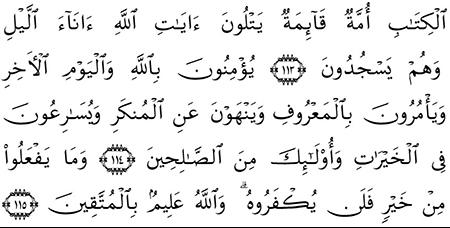 ٱلْكِتَٰبِ أُمَّةٌ قَآئِمَةٌ يَتْلُونَ ءَايَٰتِ ٱللَّهِ ءَانَآءَ ٱلَّيْلِ
وَهُمْ يَسْجُدُونَ ١١٣ يُؤْمِنُونَ بِٱللَّهِ وَٱلْيَوْمِ ٱلْأٓخِرِ
وَيَأْمُرُونَ بِٱلْمَعْرُوفِ وَيَنْهَوْنَ عَنِ ٱلْمُنكَرِ وَيُسَٰرِعُونَ
فِى ٱلْخَيْرَٰتِ وَأُو۟لَٰٓئِكَ مِنَ ٱلصَّٰلِحِينَ ١١٤ وَمَا يَفْعَلُوا۟
مِنْ خَيْرٍ فَلَن يُكْفَرُوهُ ۗ وَٱللَّهُ عَلِيمٌۢ بِٱلْمُتَّقِينَ ١١٥